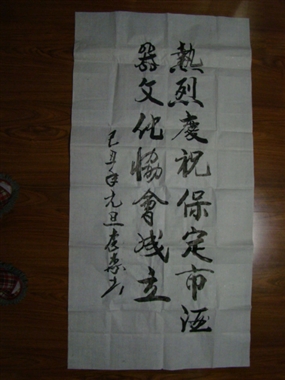 熱烈慶祝保定市酒
器文化協會成立
己丑年元旦李